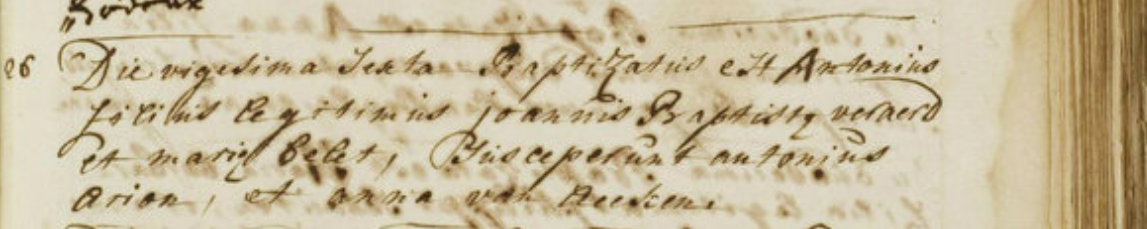 26 Die vigesima Sexta Baptizatus est Antonius
filius legitimus joannis Baptistę veraerd
et marię Celet, Susceperunt antonius
arion, et anna van